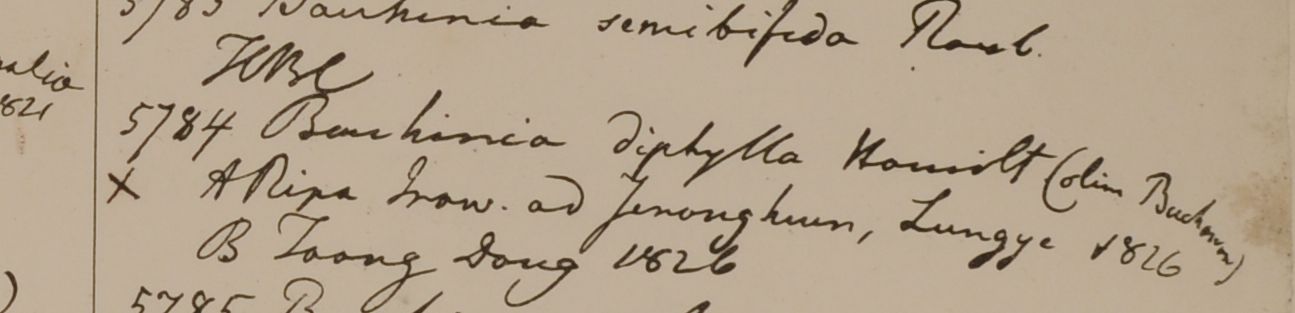 5783 Bauhinia semibifida Roxb.
HBC
1821
5784 Bauhinia diphylla Hamilt (olim Buchanan)
X A Ripa Iraw. ad Yenonghuen, Lungye 1826
B Taong Dong 1826
5785